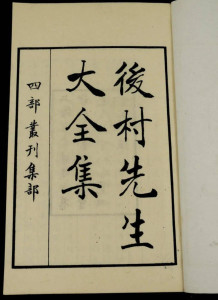 後村先生
大全集
四部叢刊集部